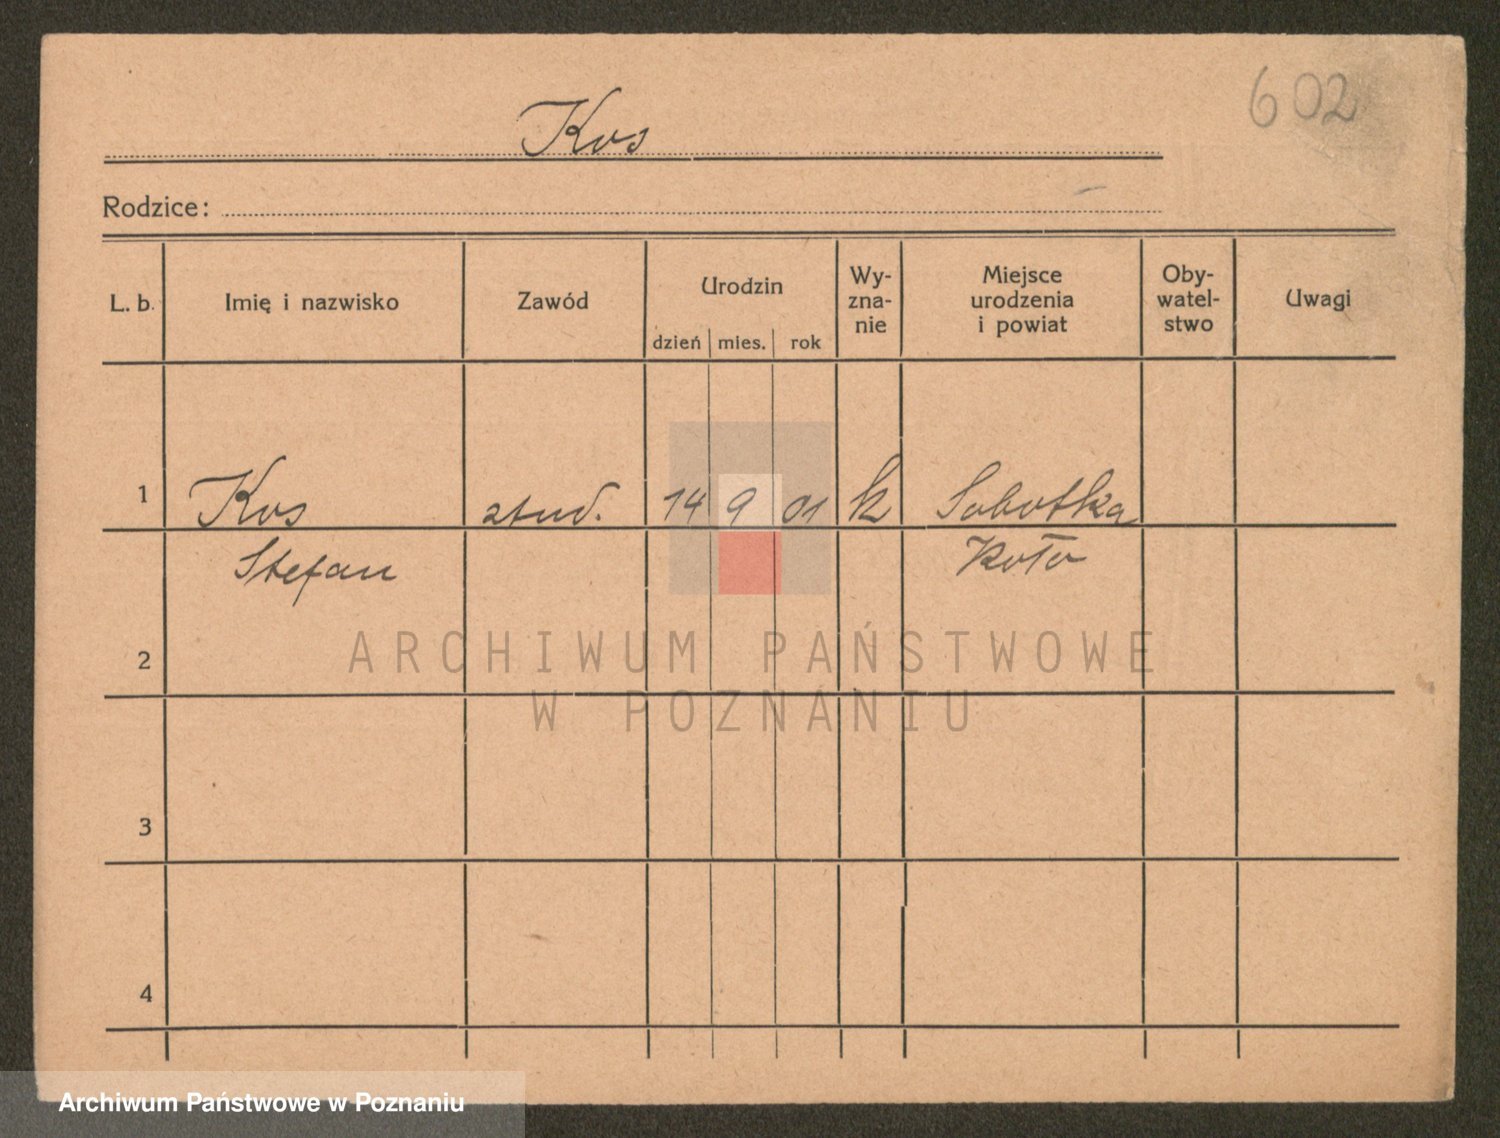 602
Kos
Rodzice:
L. b. Imię i nazwisko Zawód Urodzin dzień mies. rok Wy-zna-nie Miejsce urodzenia i powiat Oby-watel-stwo Uwagi
1 Kos stud. 14 9 01 k Sobotka
Stefan Koło
2
ARCHIWUM PAŃSTWOWE
W POZNANIU
3
4
Archiwum Państwowe w Poznaniu